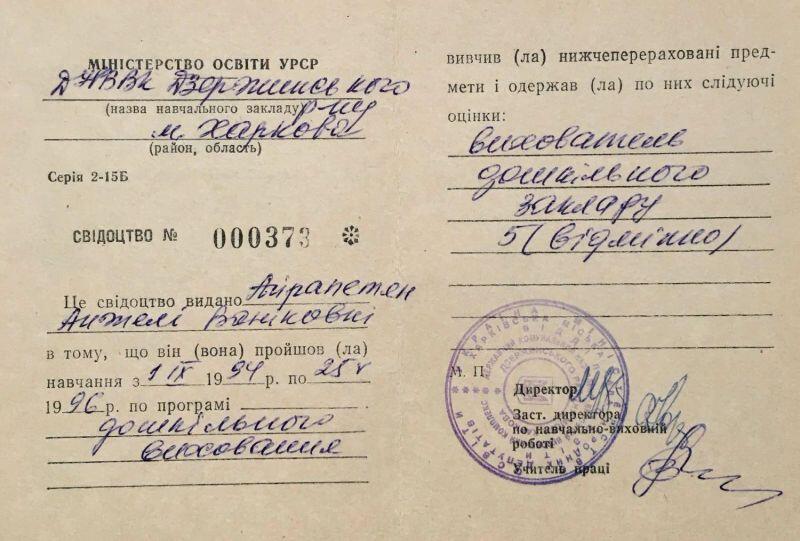 МІНІСТЕРСТВО ОСВІТИ УРСР
ДНВВК Дзержинського
(назва навчального закладу) р-ну
м. Харкова
(район, область)
Серія 2-15Б
СВІДОЦТВО № 000373
Це свідоцтво видано Айрапетян
Анжелі Ваніковні
в тому, що він (вона) пройшов (ла)
навчання з 1 ІХ 1994 р. по 25 V
1996 р. по програмі
дошкільного
виховання
вивчив (ла) нижчеперераховані пред-
мети і одержав (ла) по них слідуючі
оцінки:
вихователь
дошкільного
закладу
5 (відмінно)
М. П.
Директор
Заст. директора
по навчально-виховній
роботі
Учитель праці